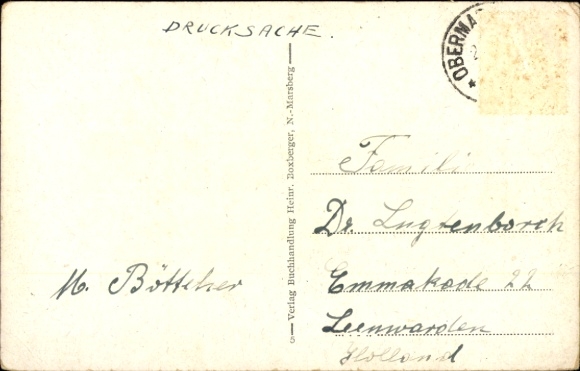 DRUCKSACHE.
OBERMA
Verlag Buchhandlung Heinr. Boxberger, N.-Marsberg
M. Böttcher
Familie
Dr. Lugtenborch
Emmakade 22
Leeuwarden
Holland